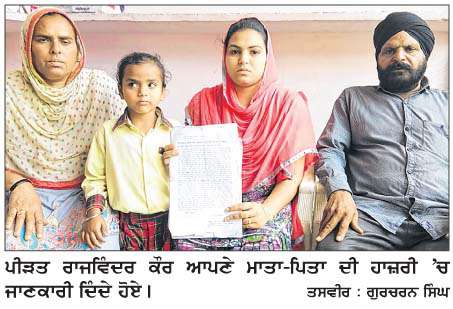 ਪੀੜਤ ਰਾਜਵਿੰਦਰ ਕੌਰ ਆਪਣੇ ਮਾਤਾ-ਪਿਤਾ ਦੀ ਹਾਜ਼ਰੀ ’ਚ
ਜਾਣਕਾਰੀ ਦਿੰਦੇ ਹੋਏ। ਤਸਵੀਰ : ਗੁਰਚਰਨ ਸਿੰਘ